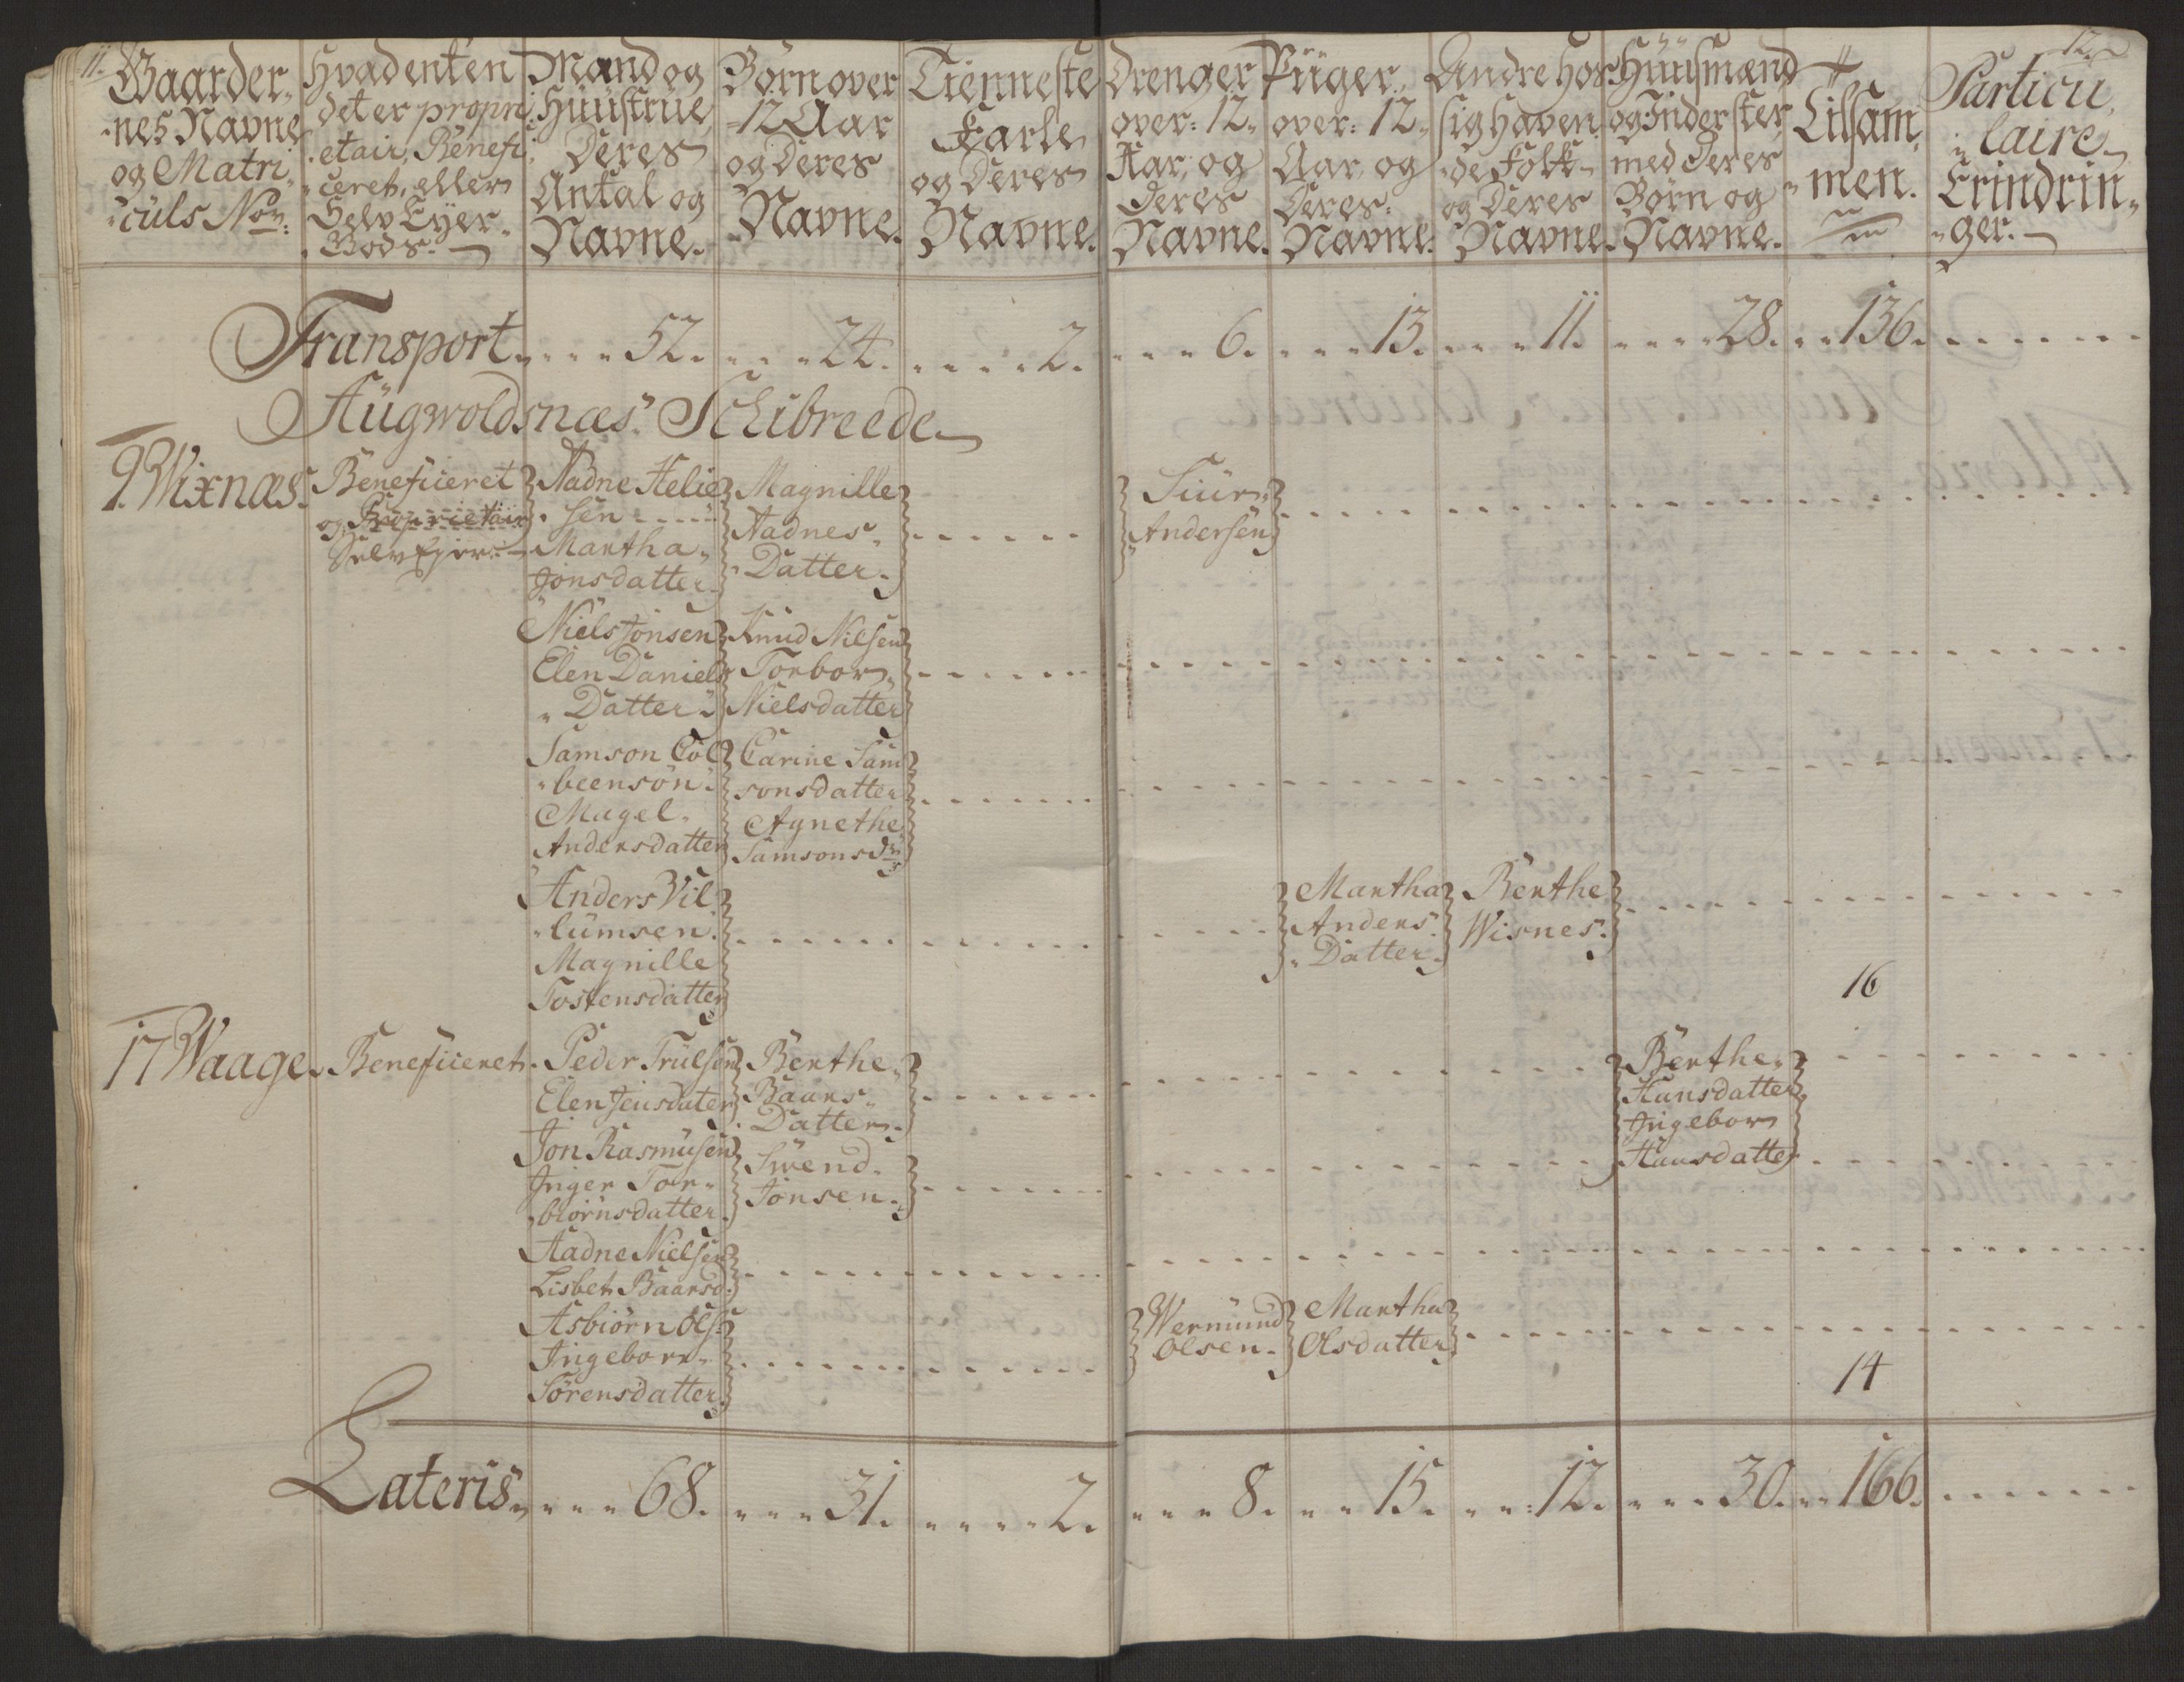 11.
12.
Gaarder,
nes Navne
og Matri,
culs Nor:
Hvadenten
det er propri
etair, Benefi,
ceret, eller
Selv Eyer.
Gods.
Mand og
Huustrue,
Deres
Antal og
Navne.
Børn over
12 Aar
og Deres
Navne.
Tienneste
Karle
og Deres
Navne.
Drenger
over: 12
Aar, og
Deres
Navne.
Piiger
over: 12
Aar, og
Deres
Navne.
Andre hos
sig haven
de Folk
og Deres
Navne.
Huusmænd
og Inderster
med Deres
Børn og
Navne.
Tilsam,
men.
Particu,
laire
Erindrin,
ger.
Transport 52. 24. 2. 6. 13. 11. 28. 136.
Augwoldsnæs Schibreede
9. Wixnæs.
Beneficeret
og Proprietair
Selv Ejer.
Aadne Helie
sen
Martha
Jonsdatter
Magnille
Aadnes
Datter.
Siur
Andersen
Niels Jonsen
Elen Daniels
Datter
Knud Nilsen
Torbor
Nielsdatter
Samson Col
beensøn
Magel
Andersdatter
Carine Sam
sonsdatter
Agnethe
Samsonsdr
Anders Vil
lumsen
Magnille
Tostensdatter
Martha
Anders
Datter.
Berthe
Wisnes.
16
17 Waage.
Beneficeret.
Peder Trulsen
Elen Jensdater
Berthe
Baars
Datter.
Berthe
Hansdatter
Ingebor
Hansdatter
Jon Rasmusen
Inger Tor
biørnsdatter
Svend
Jonsen.
Aadne Nielsen
Lisbet Baarsd.
Asbiørn Ols:
Ingebor
Sørensdatter
Wermund
Olsen.
Martha
Olsdatter
14
Lateris 68. 31. 2. 8. 15. 12. 30. 166.